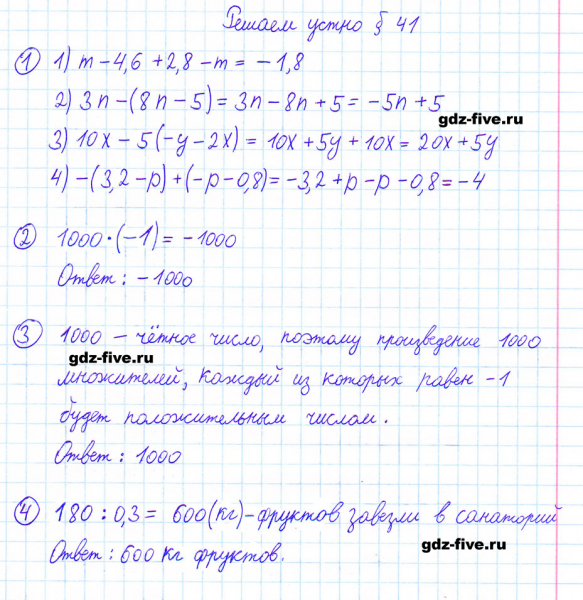 Решаем устно § 41
1 1) m - 4,6 + 2,8 - m = - 1,8
2) 3n - (8n - 5) = 3n - 8n + 5 = -5n + 5
gdz-five.ru
3) 10x - 5(-y - 2x) = 10x + 5y + 10x = 20x + 5y
4) -(3,2 - p) + (-p - 0,8) = -3,2 + p - p - 0,8 = -4
2 1000 · (-1) = - 1000
Ответ : - 1000
3 1000 – чётное число, поэтому произведение 1000
gdz-five.ru
множителей, каждый из которых равен -1
будет положительным числом.
Ответ : 1000
4 180 : 0,3 = 600 (кг) - фруктов завезли в санаторий
gdz-five.ru
Ответ : 600 кг фруктов.